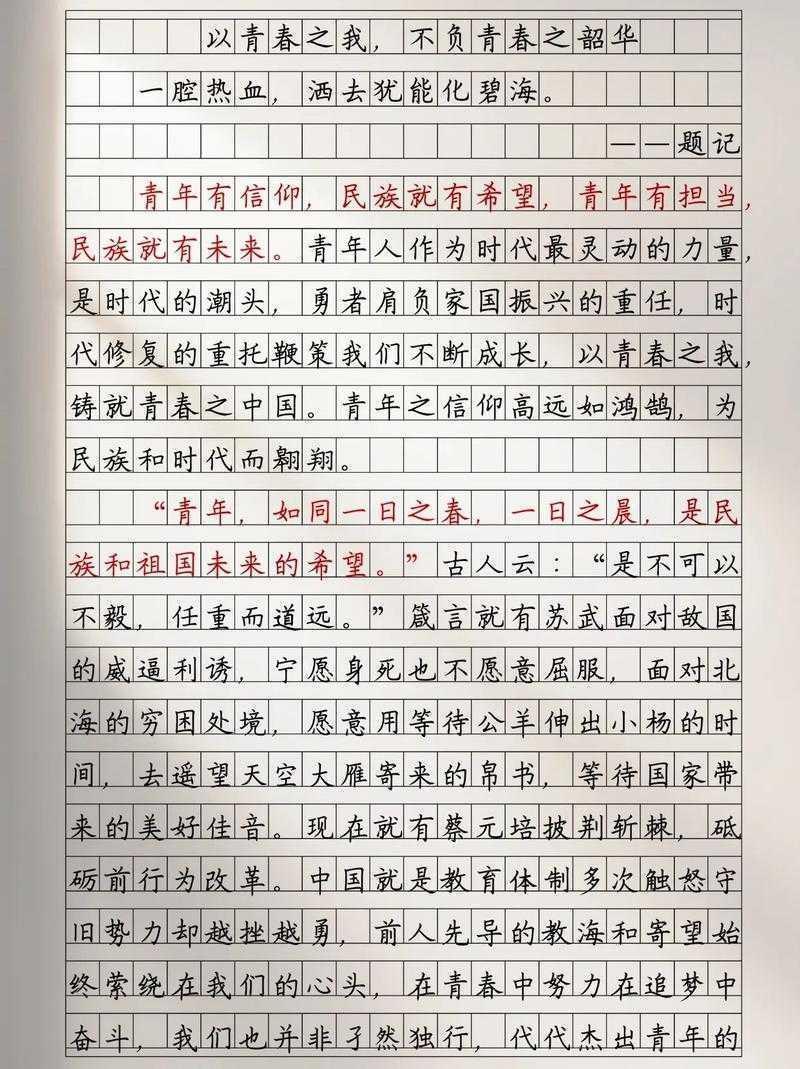 以青春之我，不负青春之韶华
一腔热血，洒去犹能化碧海。
——题记
青年有信仰，民族就有希望，青年有担当，
民族就有未来。青年人作为时代最灵动的力量，
是时代的潮头，勇者肩负家国振兴的重任，时
代修复的重托鞭策我们不断成长，以青春之我，
铸就青春之中国。青年之信仰高远如鸿鹄，为
民族和时代而翱翔。
“青年，如同一日之春，一日之晨，是民
族和祖国未来的希望。”古人云：“是不可以
不毅，任重而道远。”箴言就有苏武面对敌国
的威逼利诱，宁愿身死也不愿意屈服，面对北
海的穷困处境，愿意用等待公羊伸出小杨的时
间，去遥望天空大雁寄来的帛书，等待国家带
来的美好佳音。现在就有蔡元培披荆斩棘，砥
砺前行为改革。中国就是教育体制多次触怒守
旧势力却越挫越勇，前人先导的教海和寄望始
终萦绕在我们的心头，在青春中努力在追梦中
奋斗，我们也并非孑然独行，代代杰出青年的